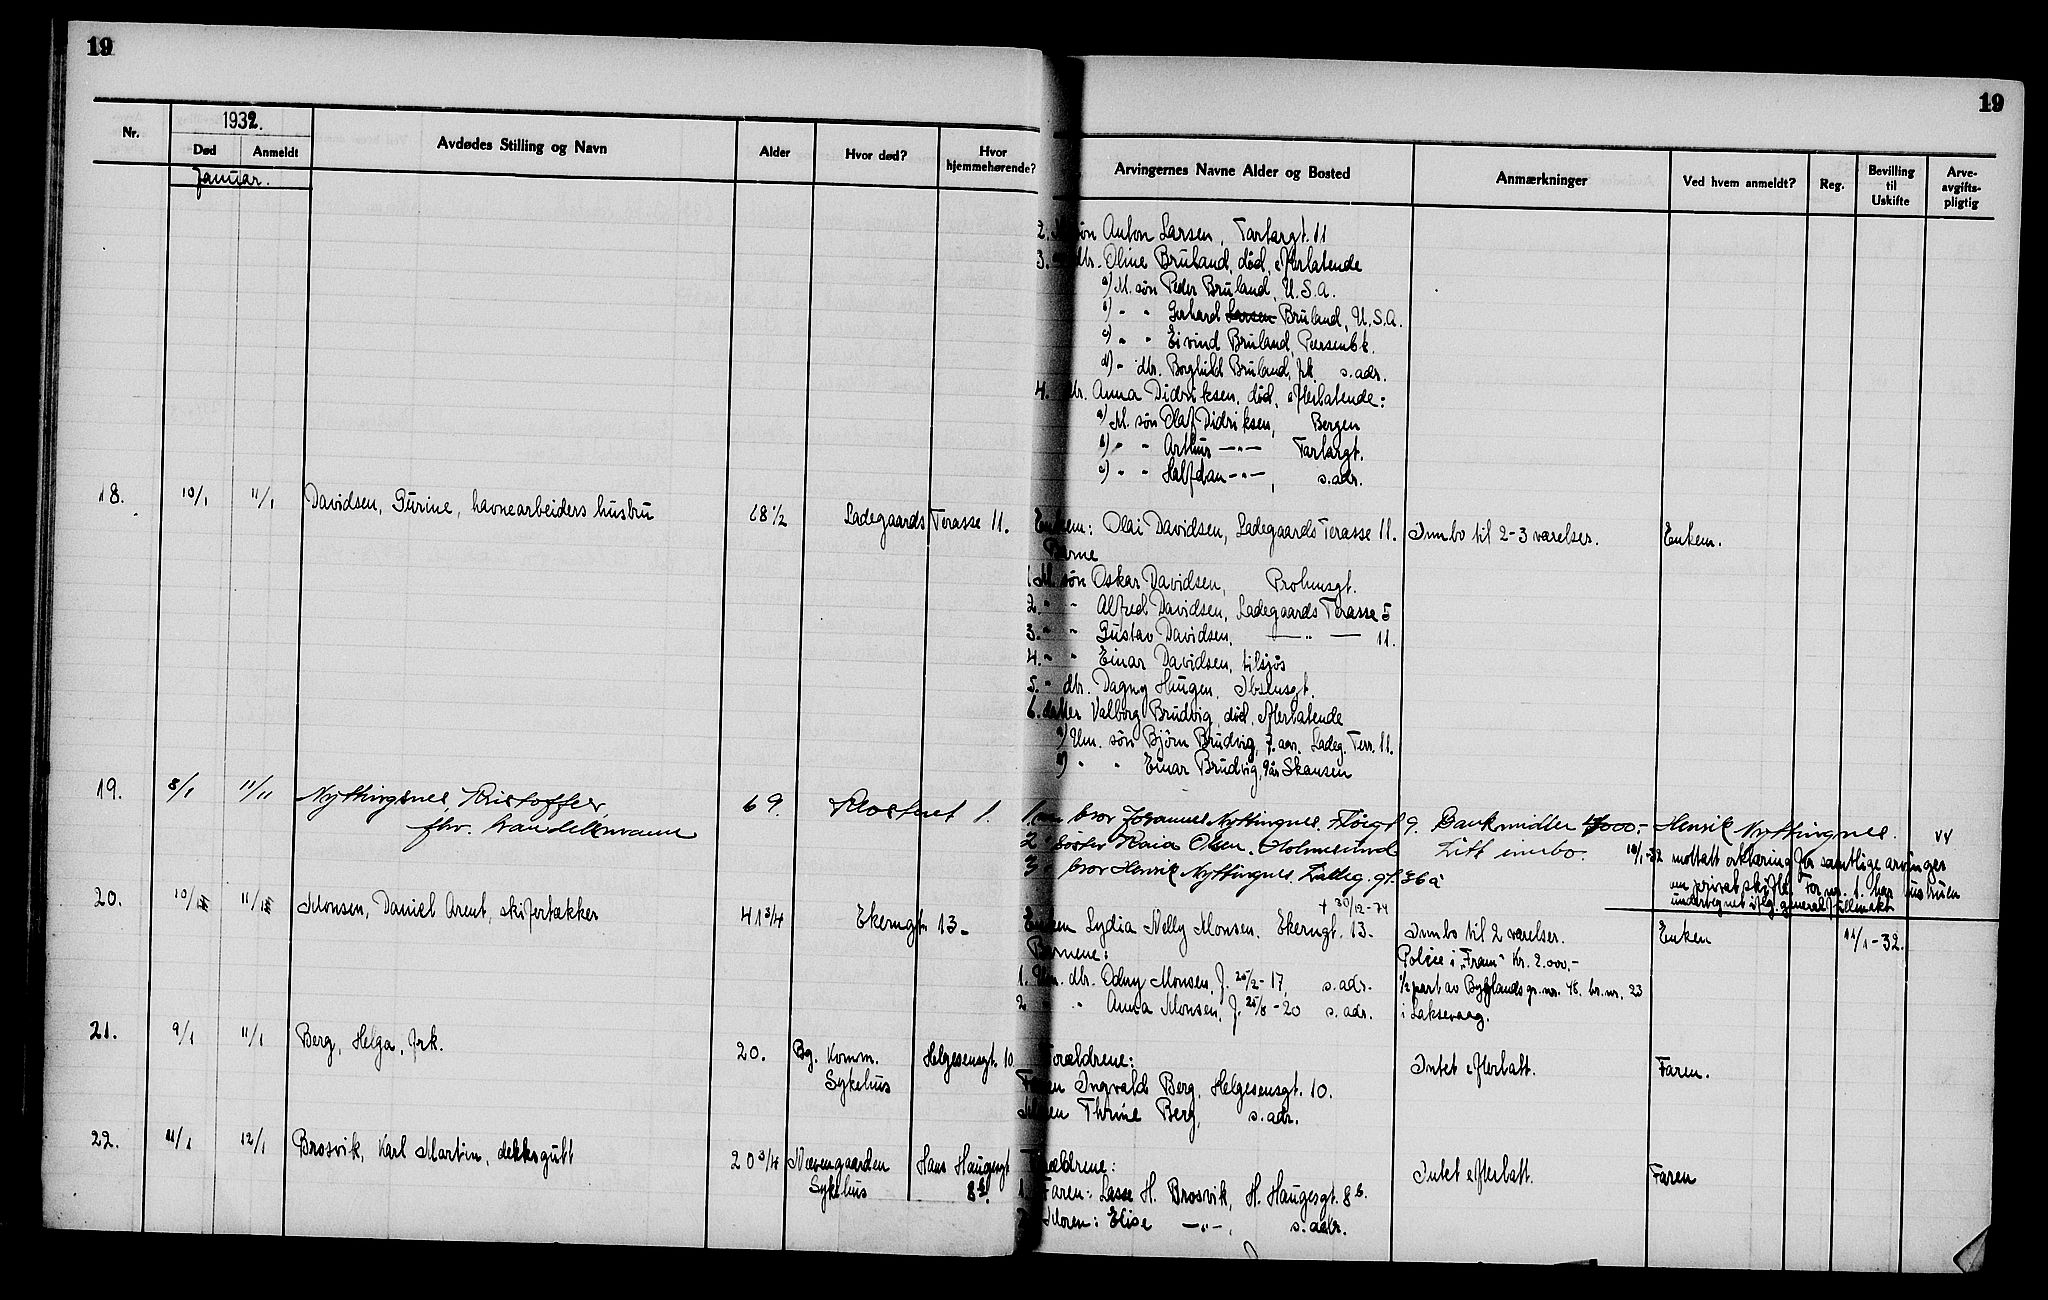 19
19
Nr.
1932.
Død
Anmeldt
Avdødes Stilling og Navn
Alder
Hvor død?
Hvor hjemmehørende?
Arvingernes Navne Alder og Bosted
Anmærkninger
Ved hvem anmeldt?
Reg.
Bevilling til Uskifte
Arve-avgifts-pligtig
Januar.
2. M. søn Anton Larsen, Tartargt. 11
3. dtr. Oline Bruland, død, efterlatende
a) M. søn Peder Bruland, U.S.A.
b) " " Gerhard Larsen Bruland, U.S.A.
c) " " Eivind Bruland, Peersenbk.
d) " dtr. Borghild Bruland, frk s. adr.
4. dtr. Anna Didriksen, død, efterlatende:
a) M. søn Olaf Didriksen, Bergen
b) " " Arthur —"— Tartargt.
c) " " Halfdan —"—, s. adr.
18. 10/1 11/1 Davidsen, Gurine, havnearbeiders hustru 68 1/2 Ladegaards Terasse 11. Enkem: Olai Davidsen, Ladegaards Terasse 11. Innbo til 2-3 værelser. Enkem.
Barne
1. M. søn Oskar Davidsen, Prahmsgt.
2. " " Alfred Davidsen, Ladegaards Terasse 5
3. " " Gustav Davidsen, —"— 11.
4. " " Einar Davidsen, tilsjøs
5. " dtr. Dagny Haugen, Ibsensgt.
6. datter Valborg Brudvig, død, efterlatende
a) Um. søn Bjørn Brudvig, 7. aar. Ladeg. Terr. 11.
b) " " Einar Brudvig, 9 år Skansen
19. 8/1 11/11 Nyttingnes, Kristoffer, 69. Klosteret 1. 1 m bror Johannes Nyttingnes, Fløigt 9. Bankmidler 17000.- Henrik Nyttingnes. vv
fhv. handelsmann
2 " søster Kaia Olsen, Holmesund Litt innbo. 18/1-32 mottatt erklæring for samtlige arvinger
3 " bror Henrik Nyttingnes. Ladeg. gt. 36 a
om privat skifte. For nr. 1 har hustruen
undertegnet iflg. generalfullmakt
20. 10/1 11/1 Monsen, Daniel Arent, skifertækker 41 3/4 Ekerngt. 13. Enken Lydia Nelly Monsen, Ekerngt. 13. † 30/12-74 Innbo til 2 værelser. Enken 11/1-32.
Barnene: Police i "Fram" Kr. 2.000.-
1. Um. dtr. Odny Monsen, f. 20/2-17, s. adr. 1/2 part av Bygglands gr. nr. 48, br. nr. 23
2 " " Anna Monsen, f. 25/8-20 s. adr. i Laksevaag.
21. 9/1 11/1 Berg, Helga, frk. 20. Bg. Komm. Sykehus Helgesensgt. 10 Forældrene: Intet efterlatt. Faren.
Faren Ingvald Berg, Helgesensgt. 10.
Moren Thrine Berg, s. adr.
22. 11/1 12/1 Brosvik, Karl Martin, dekksgutt 20 3/4 Nevengaarden Sykehus Hans Haugesgt 8 b. Forældrene: Intet efterlatt. Faren
1. Faren: Lasse H. Brosvik, H. Haugesgt. 8 b.
2. Moren: Elise —"—, s. adr.